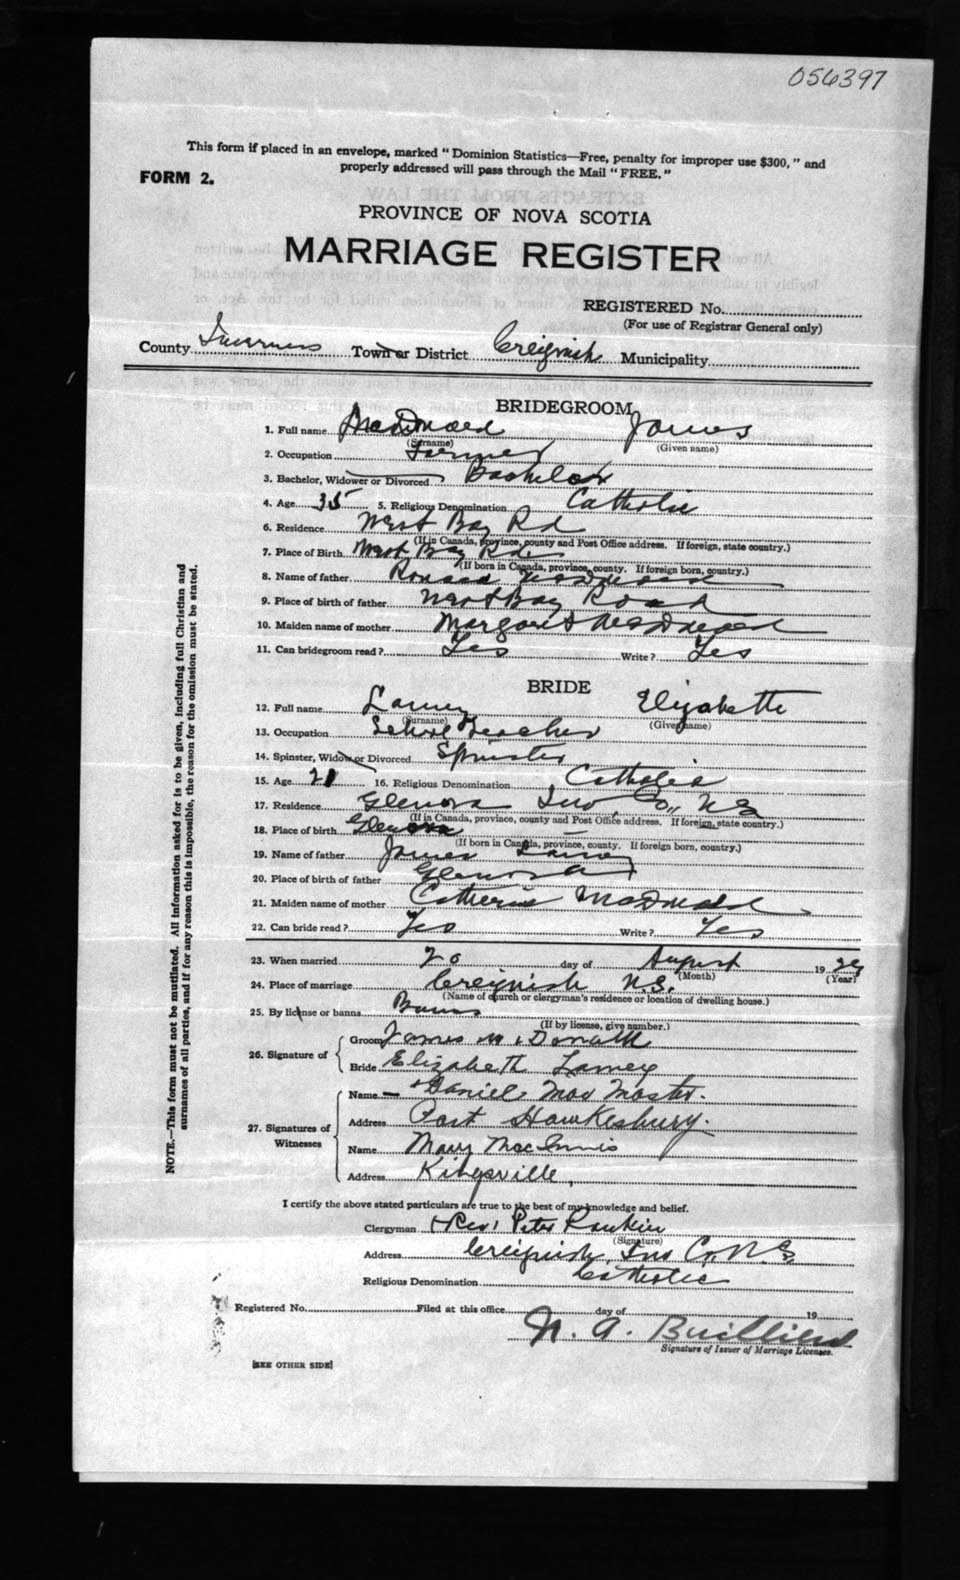 056397
This form if placed in an envelope, marked "Dominion Statistics—Free, penalty for improper use $300," and
properly addressed will pass through the Mail "FREE."
FORM 2.
PROVINCE OF NOVA SCOTIA
MARRIAGE REGISTER
REGISTERED No.
(For use of Registrar General only)
County Inverness Town or District Creignish Municipality
BRIDEGROOM
1. Full name MacDonald James
(Surname) (Given name)
2. Occupation Farmer
3. Bachelor, Widower or Divorced Bachelor
4. Age 35 5. Religious Denomination Catholic
6. Residence West Bay Rd
(If in Canada, province, county and Post Office address. If foreign, state country.)
7. Place of Birth West Bay Rd
(If born in Canada, province, county. If foreign born, country.)
8. Name of father Ronald MacDonald
9. Place of birth of father West Bay Road
10. Maiden name of mother Margaret MacDonald
11. Can bridegroom read? Yes Write? Yes
BRIDE
12. Full name Lamey Elizabeth
(Surname) (Given name)
13. Occupation School Teacher
14. Spinster, Widow or Divorced Spinster
15. Age 21 16. Religious Denomination Catholic
17. Residence Glenora Inv Co., N.S.
(If in Canada, province, county and Post Office address. If foreign, state country.)
18. Place of birth Glenora
(If born in Canada, province, county. If foreign born, country.)
19. Name of father James Lamey
20. Place of birth of father Glenora
21. Maiden name of mother Catherine MacDonald
22. Can bride read? Yes Write? Yes
23. When married 20 day of August 1929
(Month) (Year)
24. Place of marriage Creignish N.S.
(Name of church or clergyman's residence or location of dwelling house.)
25. By license or banns Banns
(If by license, give number.)
26. Signature of
Groom James M Donald
Bride Elizabeth Lamey
27. Signatures of Witnesses
Name Daniel Mac Master.
Address Port Hawkesbury.
Name Mary MacInnis
Address Kingsville,
I certify the above stated particulars are true to the best of my knowledge and belief.
Clergyman Rev. Peter Rankin
(Signature)
Address Creignish, Inv Co, N.S
Religious Denomination Catholic
Registered No. Filed at this office day of 19
N. A.
Signature of Issuer of Marriage Licenses.
[SEE OTHER SIDE]
NOTE.—This form must not be mutilated. All information asked for is to be given, including full Christian and
surnames of all parties, and if for any reason this is impossible, the reason for the omission must be stated.